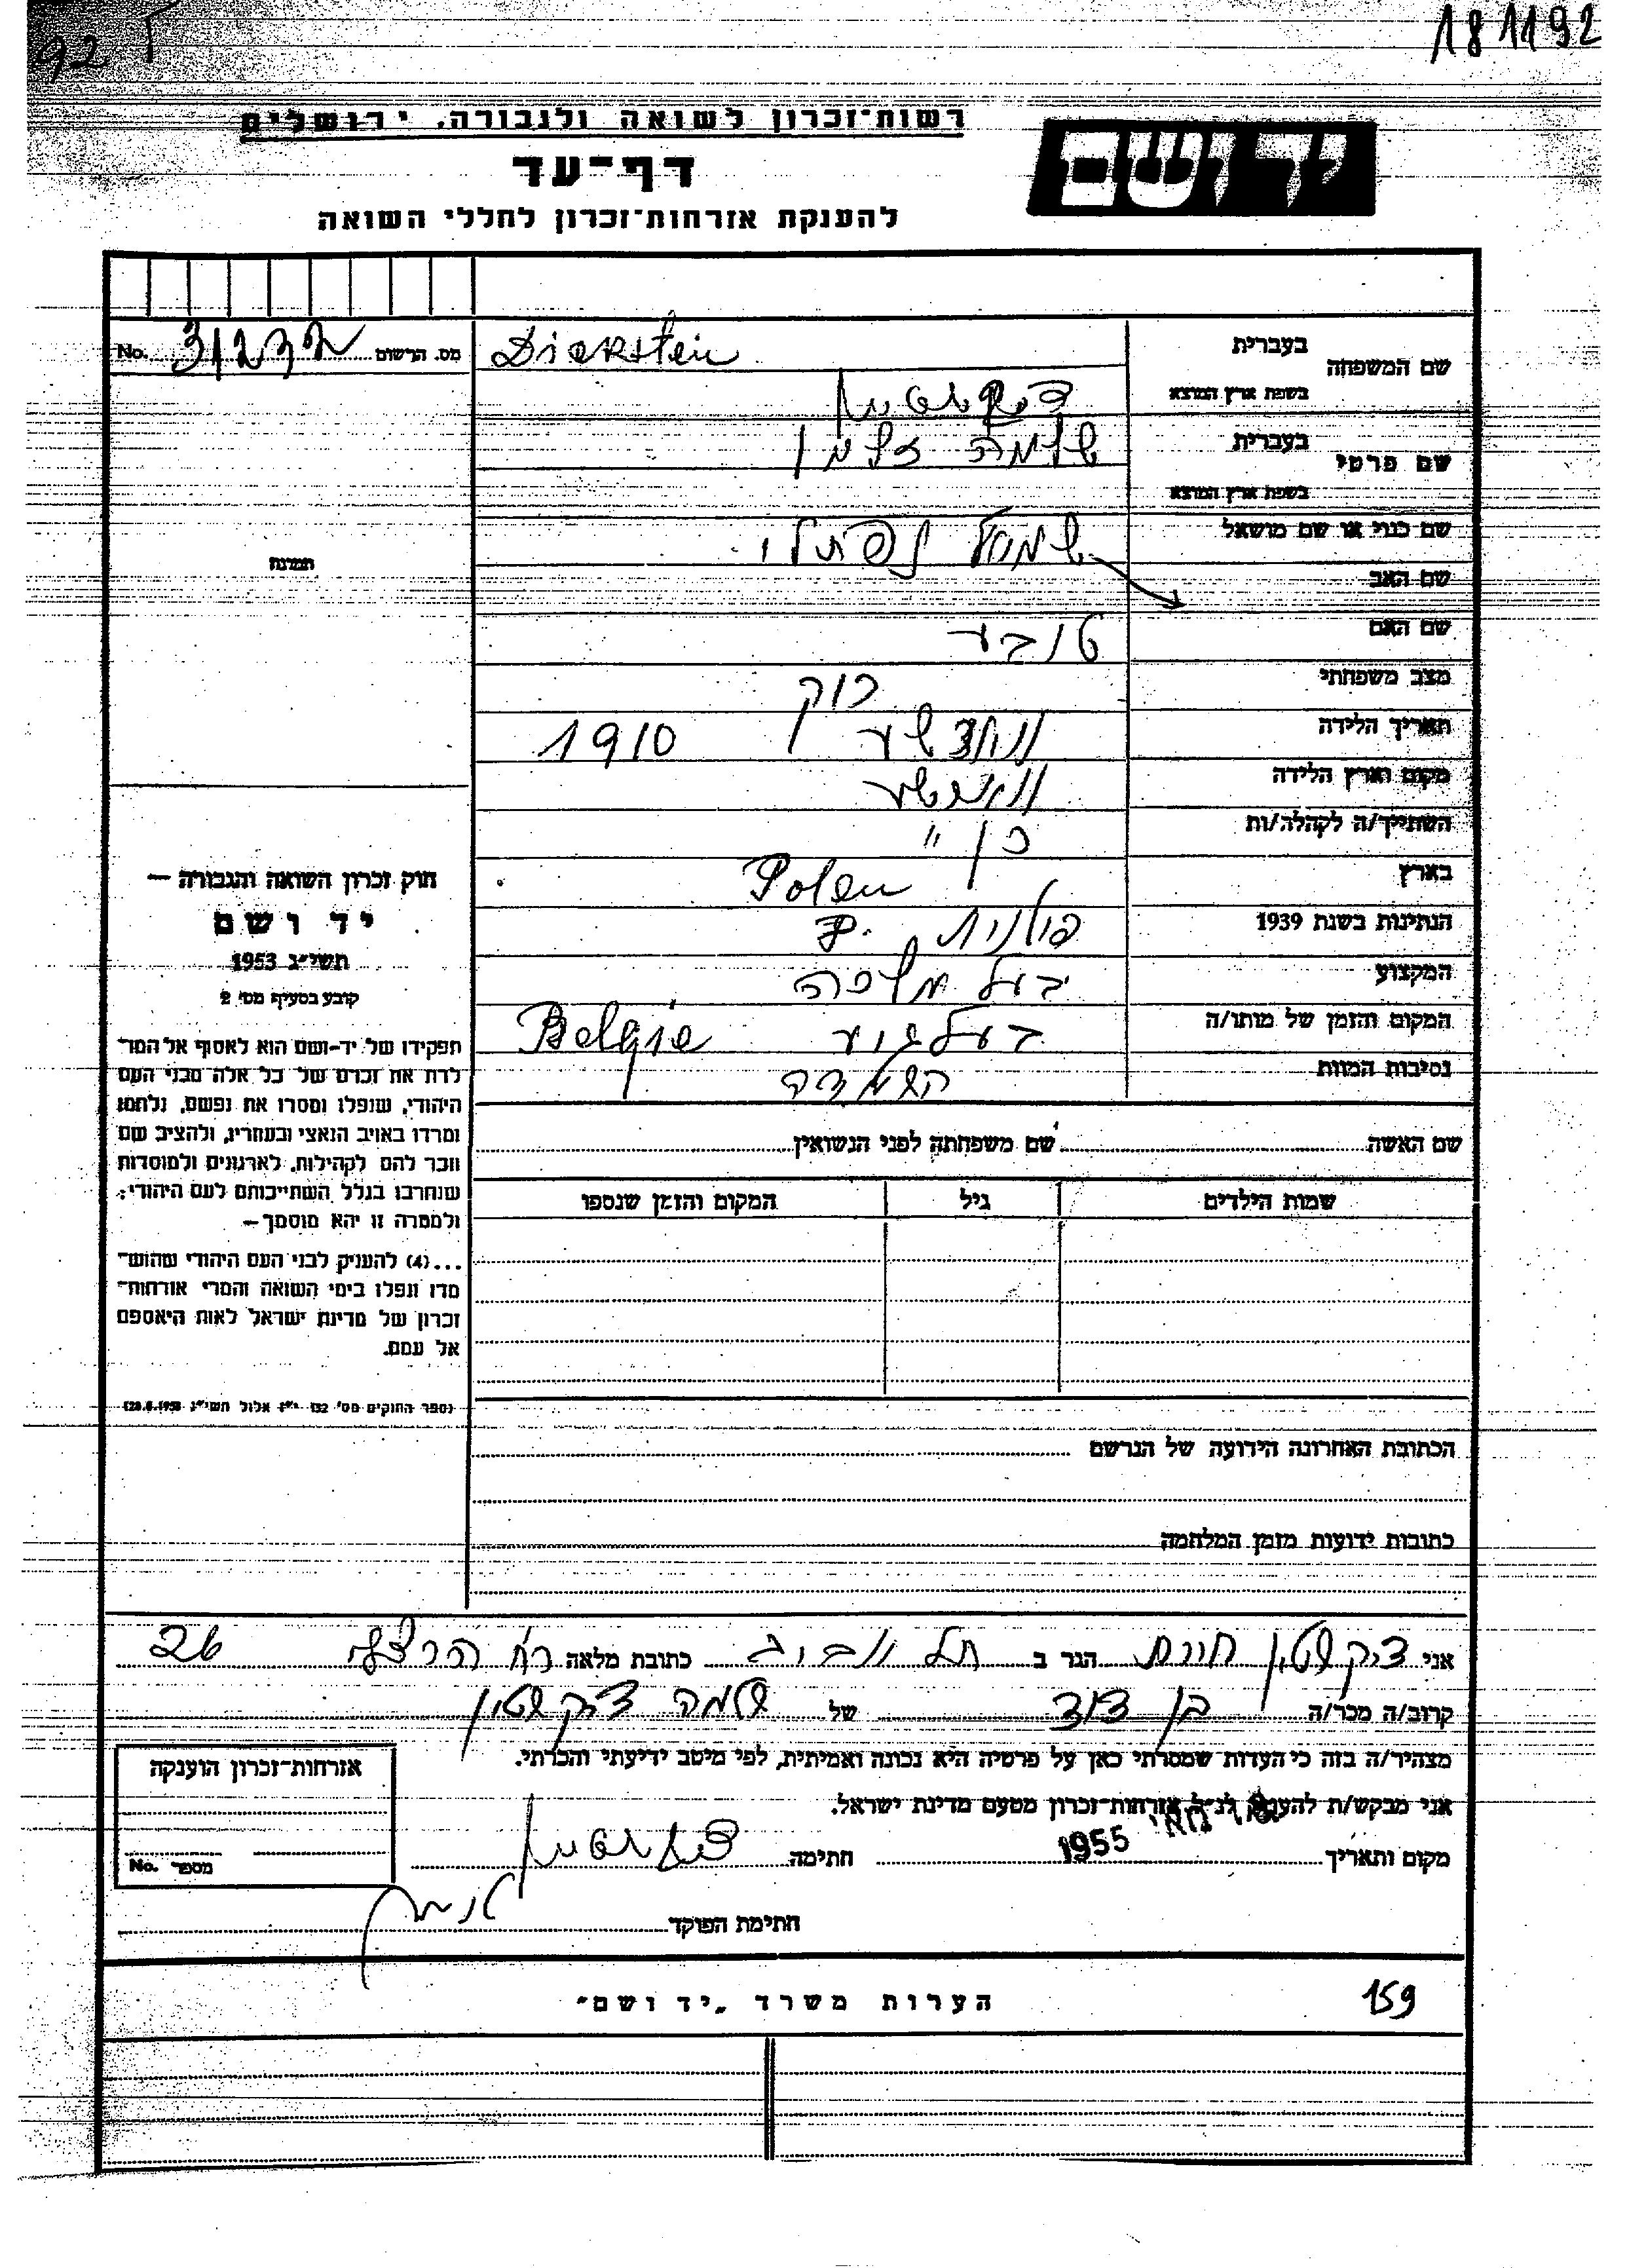 181192
92
רשות־זכרון לשואה ולגבורה, ירושלים
יד ושם
דף־עד
להענקת אזרחות־זכרון לחללי השואה
מס. הרשום No.
שם המשפחה בעברית Dickstein
בשפת ארץ המוצא
שם פרטי בעברית שלמה זלמן
בשפת ארץ המוצא
שם כנוי או שם מושאל שמואל נפתלי
שם האב
שם האם טובע
מצב משפחתי רוק
תאריך הלידה 1910
מקום וארץ הלידה
השתייך/ה לקהלה/ות כן "
בארץ Polen
הנתינות בשנת 1939 פולנית
המקצוע בעל מלאכה
המקום והזמן של מותו/ה בעלגיע Belgie
נסיבות המוות השמדה
תמונה
חוק זכרון השואה והגבורה —
יד ושם
תשי״ג 1953
קובע בסעיף מס׳ 2
תפקידו של יד-ושם הוא לאסוף אל המו־
לדת את זכרם של כל אלה מבני העם
היהודי, שנפלו ומסרו את נפשם, נלחמו
ומרדו באויב הנאצי ובעוזריו, ולהציב שם
וזכר להם לקהילות, לארגונים ולמוסדות
שנחרבו בגלל השתייכותם לעם היהודי;
ולמטרה זו יהא מוסמך —
...(4) להעניק לבני העם היהודי שהוש־
מדו ונפלו בימי השואה והמרי אזרחות־
זכרון של מדינת ישראל לאות היאספם
אל עמם.
(ספר החוקים מס׳ 132 י״ז אלול תשי״ג 28.8.1953)
שם האשה שם משפחתה לפני הנשואין
שמות הילדים גיל המקום והזמן שנספו
הכתובת האחרונה הידועה של הנרשם
כתובות ידועות מזמן המלחמה
אני דיקשטין חיות הגר ב תל אביב כתובת מלאה רח הרצל 26
קרוב/ה מכר/ה בן דוד של שלמה דיקשטין
מצהיר/ה בזה כי העדות שמסרתי כאן על פרטיה היא נכונה ואמיתית, לפי מיטב ידיעתי והכרתי.
אני מבקש/ת להעניק לנ״ל אזרחות־זכרון מטעם מדינת ישראל.
מקום ותאריך מאי 1955 חתימה
חתימת הפוקד
אזרחות־זכרון הוענקה
מספר No.
הערות משרד „יד ושם״
159